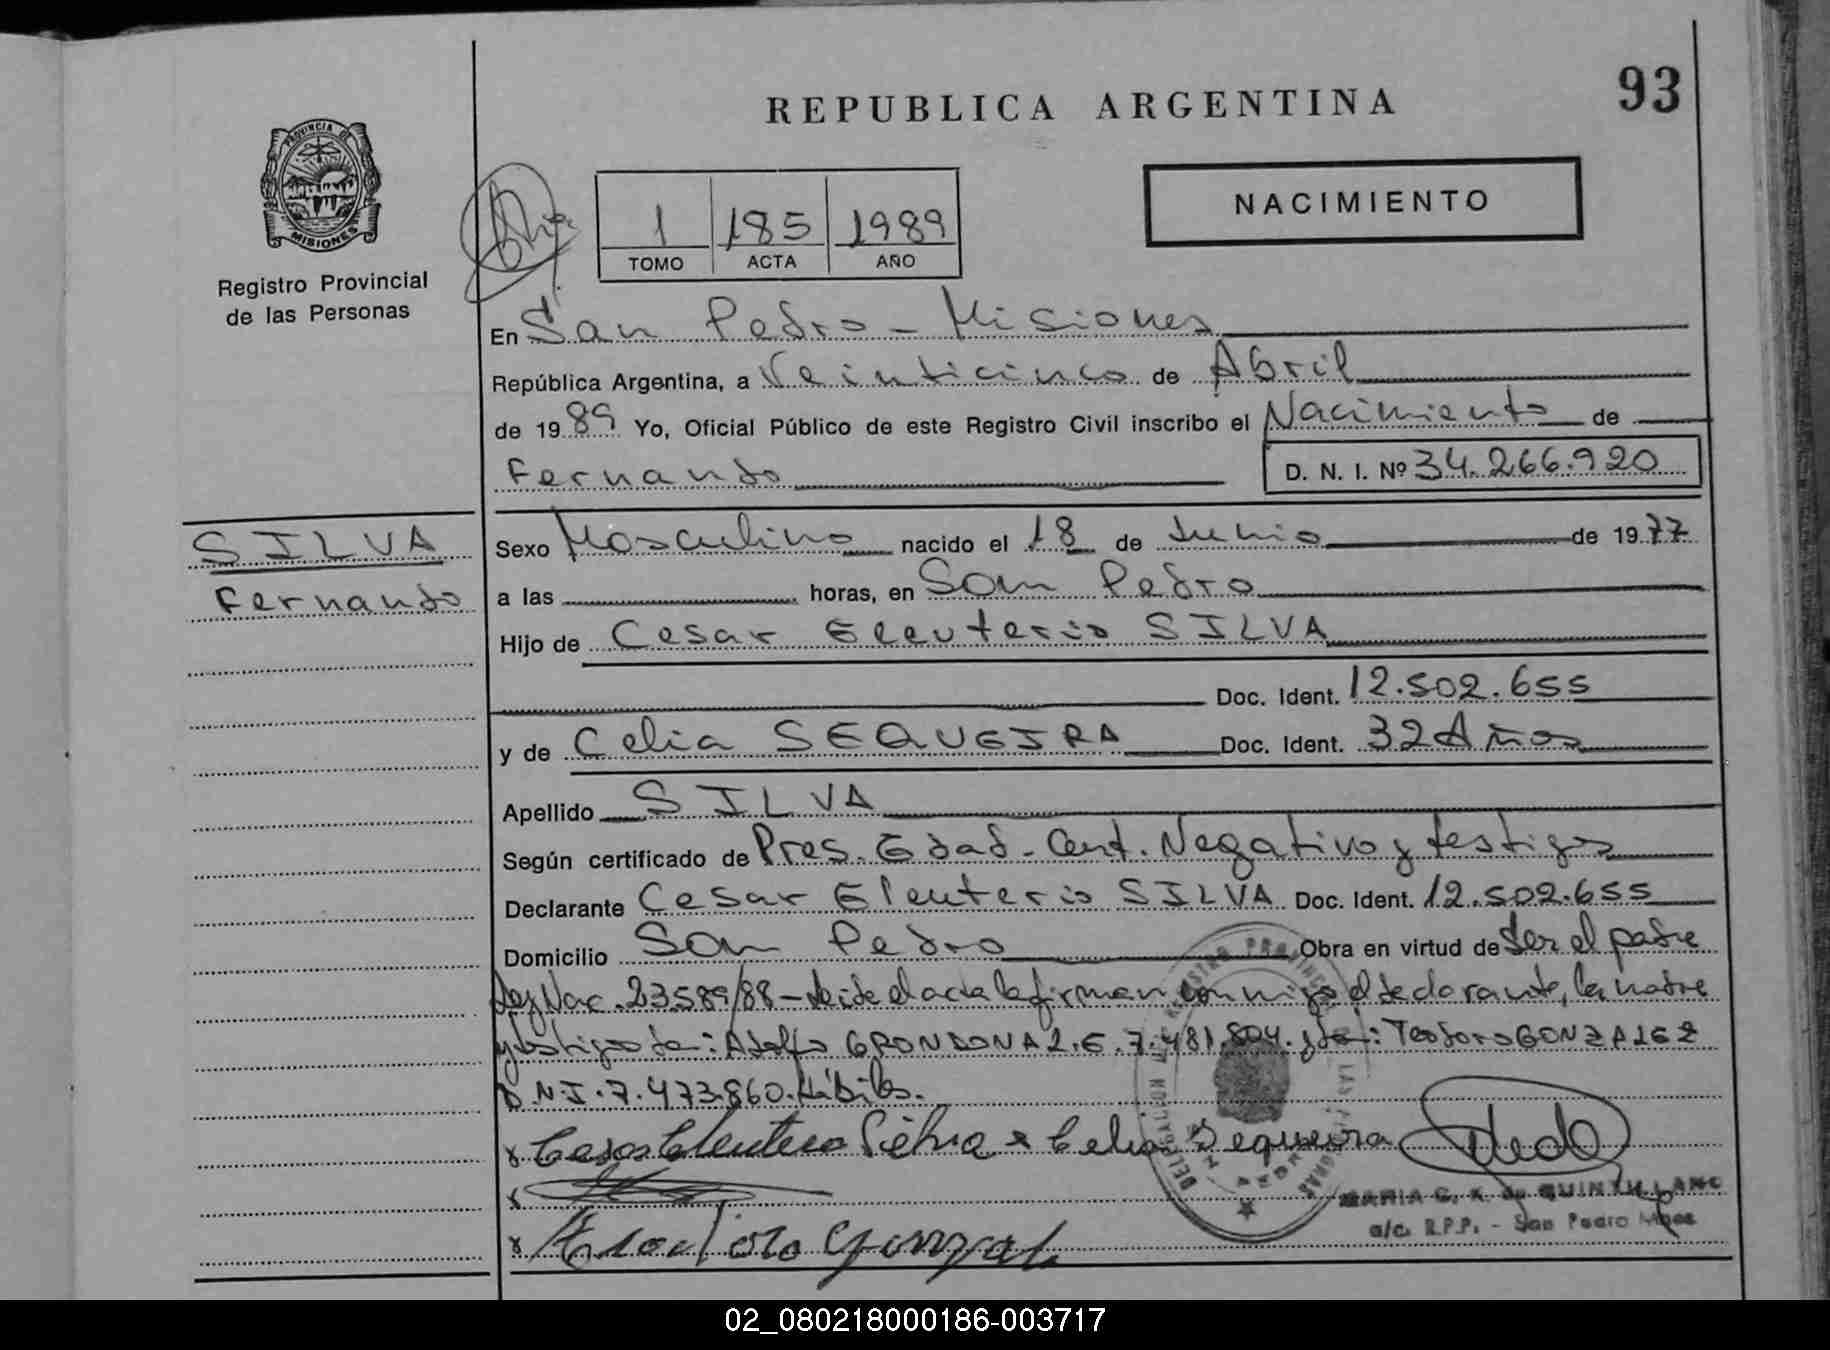 REPUBLICA ARGENTINA
93
PROVINCIA DE
MISIONES
Registro Provincial
de las Personas
1 185 1989
TOMO ACTA AÑO
NACIMIENTO
En San Pedro - Misiones
República Argentina, a Veinticinco de Abril
de 1989 Yo, Oficial Público de este Registro Civil inscribo el Nacimiento de
Fernando
D. N. I. Nº 34.266.920
SILVA
Fernando
Sexo Masculino nacido el 18 de Junio de 1977
a las horas, en San Pedro
Hijo de Cesar Eleuterio SILVA
Doc. Ident. 12.502.655
y de Celia SEQUEIRA Doc. Ident. 32 Años
Apellido SILVA
Según certificado de Pres. Edad - Cert. Negativo y testigos
Declarante Cesar Eleuterio SILVA Doc. Ident. 12.502.655
Domicilio San Pedro Obra en virtud de Ser el padre
Ley Nac. 23.589/88 - leída el acta la firman conmigo el declarante, la madre
y testigos Adolfo GRONDONA L.E. 7.481.804. y Teodoro GONZALEZ
D.N.I. 7.473.860. Hábiles.
x Cesar Eleuterio Silva x Celia Sequeira
x
x Teodoro Gonzal
MARIA G. K. de QUINTILLANO
a/c. R.P.P. - San Pedro Mnes
02_080218000186-003717